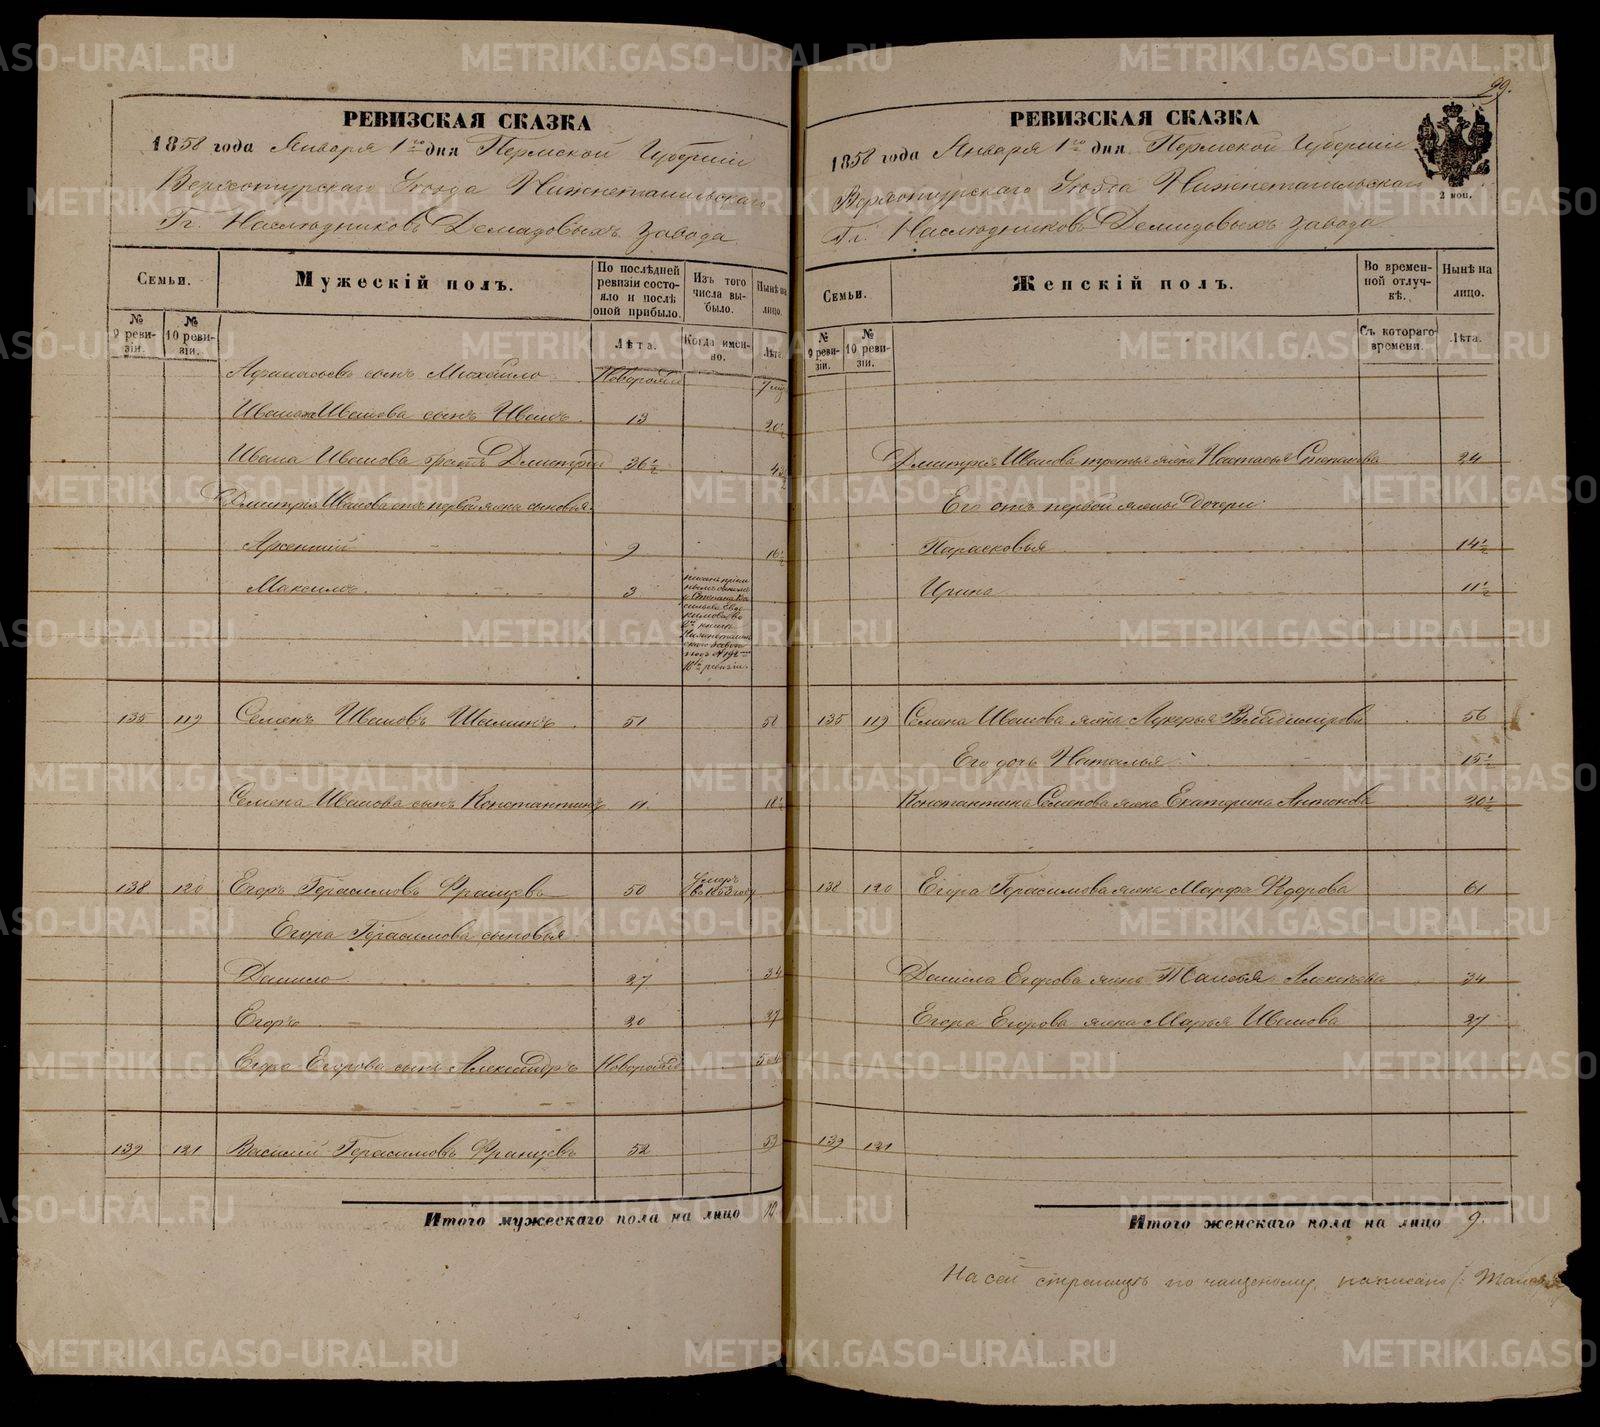 РЕВИЗСКАЯ СКАЗКА
1858 года Января 1го дня Пермской Губернiи
Верхотурскаго Уѣзда Нижнетагильскаго
Гг. Наслѣдниковъ Демидовыхъ завода
Семьи.
Мужескiй полъ.
По послѣдней ревизiи состояло и послѣ оной прибыло.
Изъ того числа выбыло.
Нынѣ на лицо.
№ 9 ревизiи.
№ 10 ревизiи.
Лѣта.
Когда именно.
Лѣта.
сынъ Михайло Новорожд 7
Ивана Иванова сынъ Иванъ 13 20½
Ивана Иванова братъ Дмитрiй 36½
Дмитрiя Иванова отъ первой жены сыновья:
Арсентiй 9 16½
Максимъ 3
135 119 Семенъ Ивановъ Шаминъ 51 58
Семена Иванова сынъ Константинъ 11 18½
138 120 Егоръ Герасимовъ Францевъ 50 Умеръ въ 1853 году
Егора Герасимова сыновья:
Данило 27 34
Егоръ 20 27
Егора Егорова сынъ Александръ Новорожд 5
139 121 Василiй Герасимовъ Францевъ 52 59
Итого мужескаго пола на лицо 12
99.
РЕВИЗСКАЯ СКАЗКА
1858 года Января 1го дня Пермской Губернiи
Верхотурскаго Уѣзда Нижнетагильскаго
Гг. Наслѣдниковъ Демидовыхъ завода
2 коп.
Семьи.
Женскiй полъ.
Во временной отлучкѣ.
Нынѣ на лицо.
№ 9 ревизiи.
№ 10 ревизiи.
Съ котораго времени.
Лѣта.
Дмитрiя Иванова третья жена Настасья Степанова 24
Его отъ первой жены дочери:
Парасковья 14½
Ирина 11½
135 119 Семена Иванова жена Лукерья Владимiрова 56
Его дочь Наталья 15½
Константина Семенова жена Екатерина Антонова 20½
138 120 Егора Герасимова жена Марфа Федорова 61
Данила Егорова жена Алексѣева 34
Егора Егорова жена Марья Иванова 27
139 121
Итого женскаго пола на лицо 9.
На сей страницѣ по чищеному, написано
METRIKI.GASO-URAL.RU